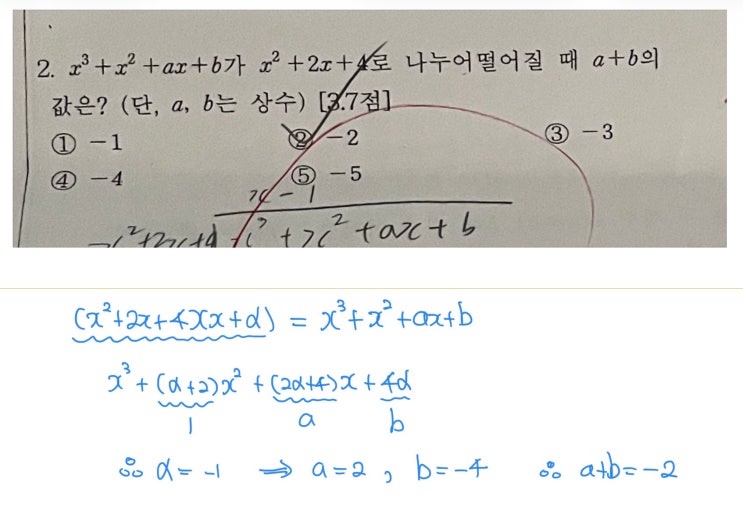 2. x³+x²+ax+b가 x²+2x+4로 나누어떨어질 때 a+b의
값은? (단, a, b는 상수) [3.7점]
① -1 ② -2 ③ -3
④ -4 ⑤ -5
x-1
x²+2x+4 x³+x²+ax+b
(x²+2x+4)(x+α) = x³+x²+ax+b
x³+(α+2)x²+(2α+4)x+4α
1 a b
∴ α=-1 ⇒ a=2, b=-4 ∴ a+b=-2